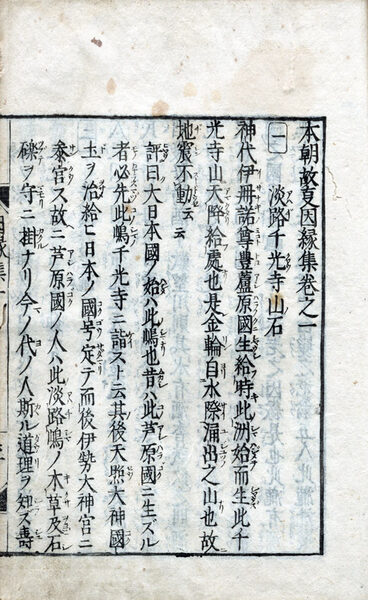 本朝故事因縁集巻之一
一 淡路千光寺山石
神代伊弉諾尊豊蘆原國生給時此洲始而生此千
光寺山天降給處也是金輪自水際涌出之山也故
地震不動云云
評曰大日本國ノ始ハ此嶋也昔ハ此芦原國ニ生ズル
者必先此嶋千光寺ニ詣スト云其後天照大神國
土ヲ治給ヒ日本ノ國号定テ而後伊勢大神宮ニ
参宮ス故ニ芦原國ノ人ハ此淡路嶋ノ木草及石
礫ヲ守ニ掛ナリ今ノ代ノ人斯ル道理ヲ知ズ壽